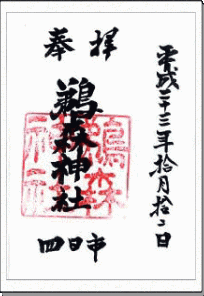 平成二十三年拾月拾二日
奉拝
鵜森神社
四日市
鵜森
神社